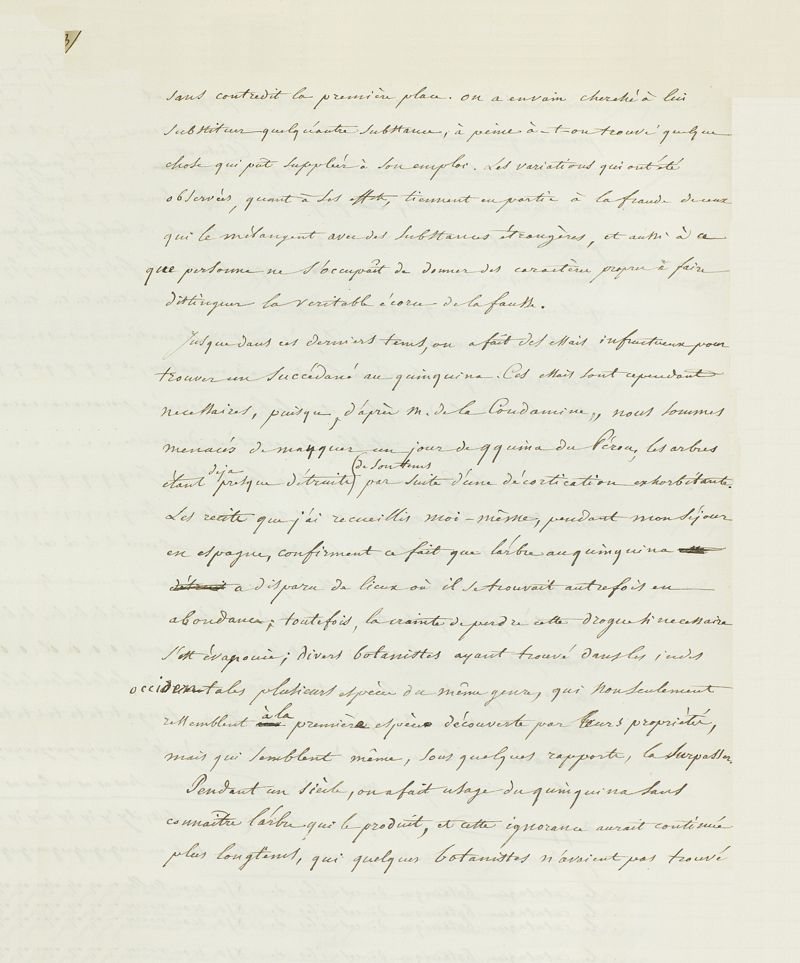 3/
sans contredit la première place. on a envain cherché à lui
substituer quelqu'autre substance, à peine a-t-on trouvé quelque
chose qui put suppléer à son emploi. Les variations qui ont été
observées, quant à ses effets, tiennent en partie à la fraude de ceux
qui le mélangent avec des substances étrangères, et aussi à ce
que personne ne s'occupait de donner des caractères propres à faire
distinguer la veritable écorce de la fausse.
Jusque dans ces derniers tems, on a fait des essais infructueux pour
trouver un succédané au quinquina. Ces essais sont cependant
necessaires, puisque, d'après m. de la Condamine, nous sommes
menacés de manquer un jour de qquina du Pérou, les arbres
étant déja presque détruits (de son tems par suite d'une décortication exhorbitante.
Les recits que j'ai recueillis moi-même, pendant mon séjour
en espagne, confirment ce fait que l'arbre au quinquina
détruit a disparu de lieux où il se trouvait autrefois en
abondance; toutefois, la crainte de perdre cette drogue si necessaire
s'est évanouie; divers botanistes ayant trouvé dans les indes
occidentales plusieurs espèces du même genre, qui non seulement
ressemblent à la première espèce découverte par leurs propriétés,
mais qui semblent même, sous quelques rapports, la surpasser.
Pendant un siècle, on a fait usage du quinquina sans
connaître l'arbre qui le produit, et cette ignorance aurait continué
plus longtems, qui quelques botanistes n'avaient pas trouvé